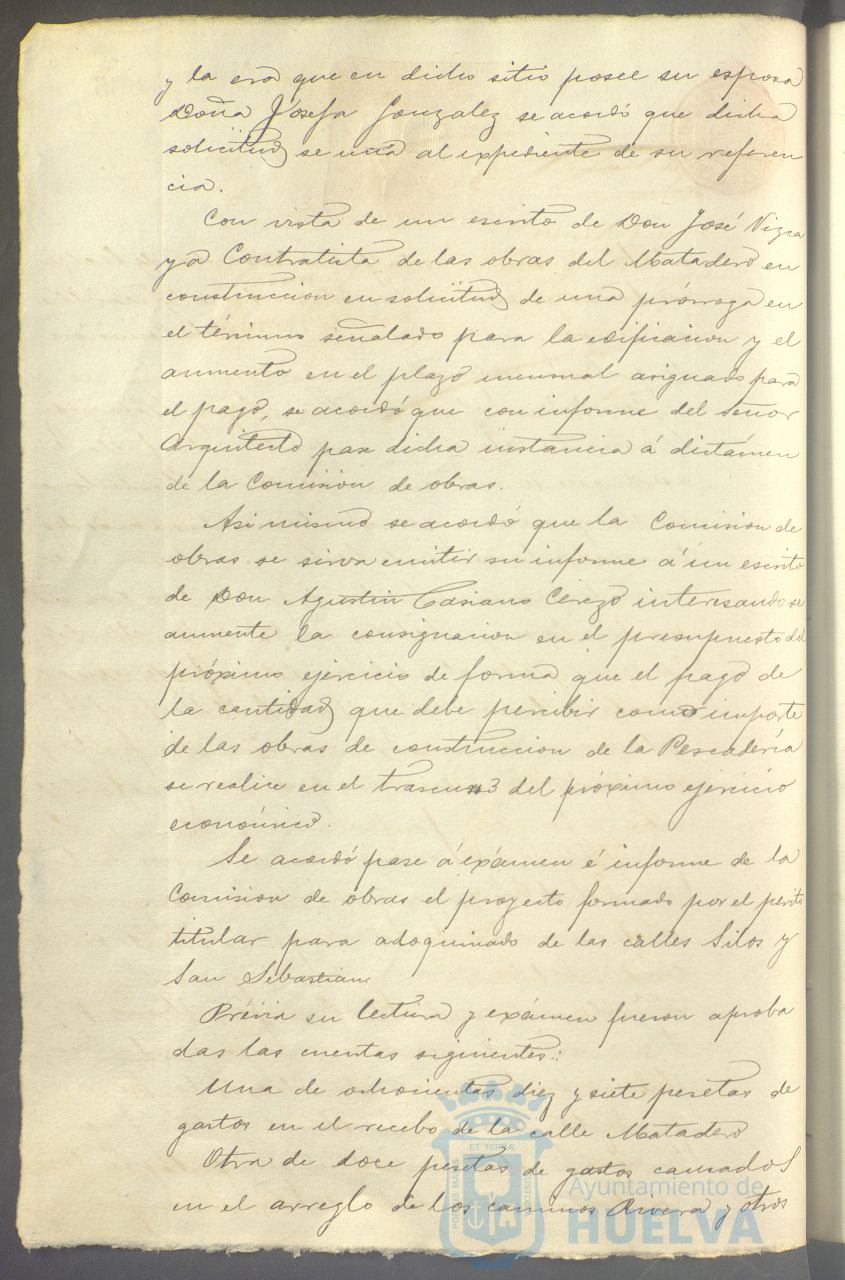 y la era que en dicho sitio posee su esposa
Doña Josefa Gonzalez se acordó que dicha
solicitud se una al expediente de su referen
cia.
Con vista de un escrito de Don José Vizca
ya Contratista de las obras del Matadero en
construccion en solicitud de una prórroga en
el término señalado para la edificacion y el
aumento en el plazo mensual asignado para
el pago, se acordó que con informe del Señor
Arquitecto pase dicha instancia á dictámen
de la Comision de obras.
Asi mismo se acordó que la Comision de
obras se sirva emitir su informe á un escrito
de Don Agustin Casiano Cerezo interesando se
aumente la consignacion en el presupuesto del
próximo ejercicio de forma que el pago de
la cantidad que debe percibir como importe
de las obras de construccion de la Pescadería
se realice en el trascurso del próximo ejercicio
económico.
Se acordó pase á exámen é informe de la
Comision de obras el proyecto formado por el perito
titular para adoquinado de las calles Silos y
San Sebastian
Prévia su lectura y exámen fueron aproba
das las cuentas siguientes:
Una de ochocientas diez y siete pesetas de
gastos en el recebo de la calle Matadero
Otra de doce pesetas de gastos causados
en el arreglo de los caminos Rivera y otros
PORTUS MARIS
ET TERRÆ
CUSTODIA
Ayuntamiento de
HUELVA